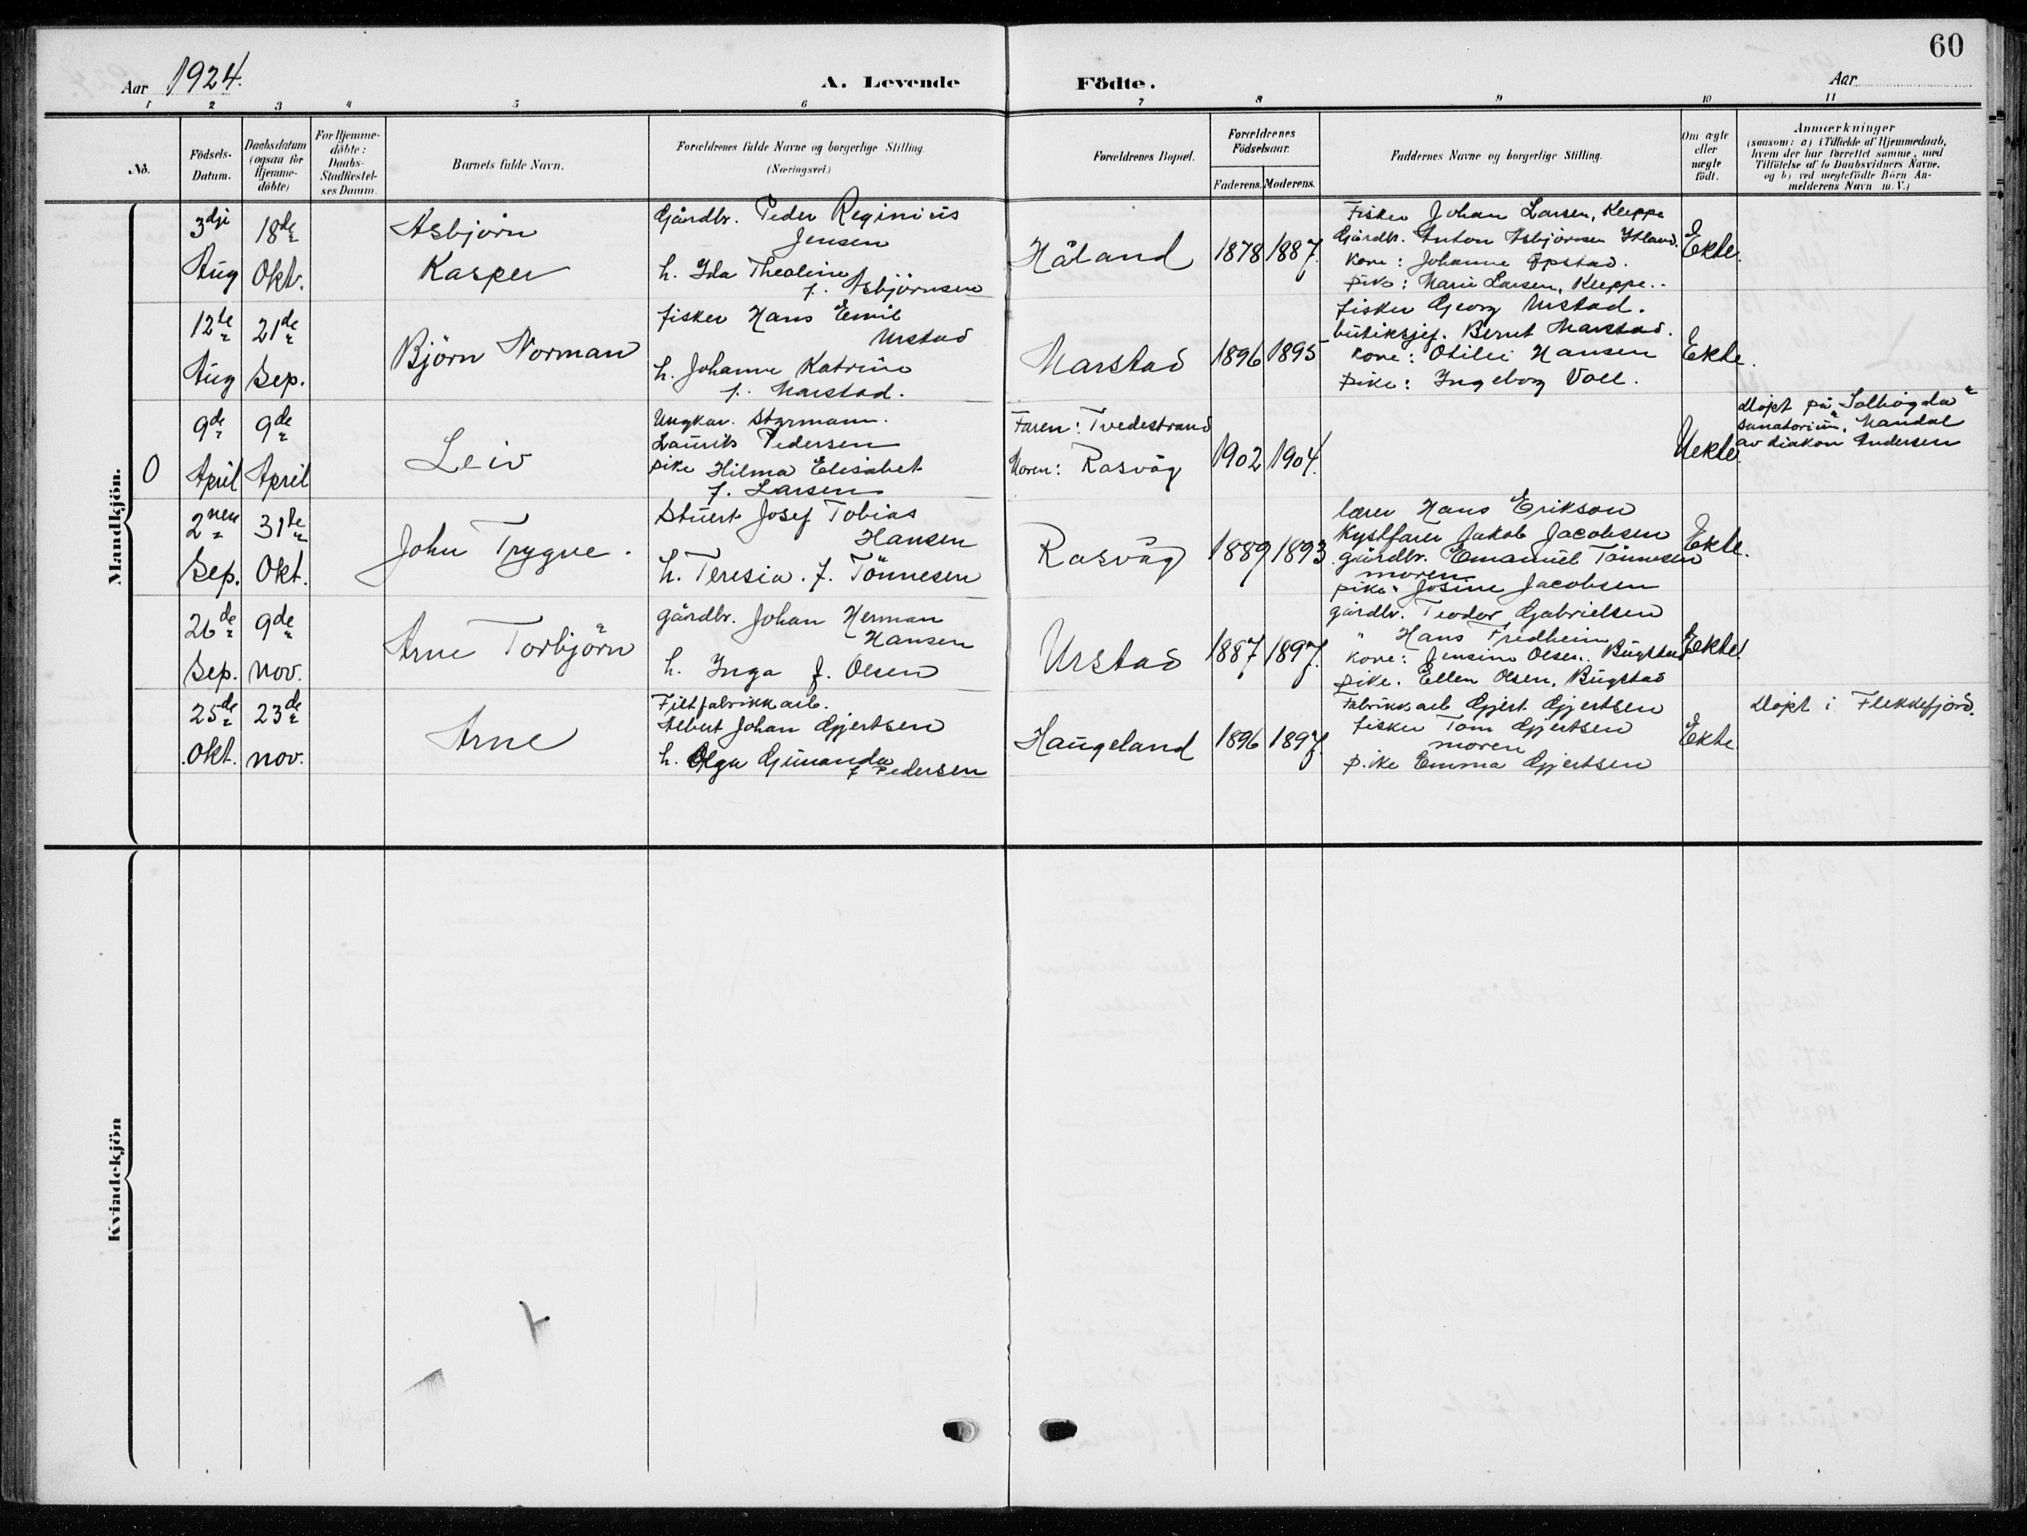 60
Aar 1924.
A. Levende Födte.
Aar
1 2 3 4 5 6 7 8 9 10 11
No.
Födsels-Datum.
Daabsdatum (ogsaa for Hjemmedöbte)
For Hjemmedöbte: Daabs-Stadfæstelses Datum.
Barnets fulde Navn.
Forældrenes fulde Navne og borgerlige Stilling.
(Næringsvei.)
Forældrenes Bopæl.
Forældrenes Födselsaar.
Faderens. Moderens.
Faddernes Navne og borgerlige Stilling.
Om ægte eller uægte födt.
Anmærkninger
(saasom: a) i Tilfælde af Hjemmedaab,
hvem der har forrettet samme, med
Tilföielse af to Daabsvidners Navne.
og b) ved uægtefödte Börn An-
melderens Navn m. V.)
Mandkjön.
3dji Aug
18de Okt.
Asbjörn
Kasper
Gårdbr. Peder Reginius
Jensen
h. Ida Theoline
f. Asbjörnsen
Håland
1878 1887.
Fisker Johan Larsen, Kleppe
Gårdbr. Anton Asbjörnsen
Kone: Johanne Opstad.
Pike: Marie Larsen, Kleppe.
Ekte.
12te Aug
21de Sep.
Björn Norman
fisker Hans Emil
Urstad
h. Johanne Katrine
f. Marstad.
Marstad
1896 1895
fisker Georg Urstad.
butiksjef. Bernt Marstad.
Kone: Otilie Hansen
Pike: Ingeborg Voll.
Ekte.
0
9de April
9de April
Leiv
Ungkar. Styrmann.
Laurits Pedersen
pike Hilma Elisabet
f. Larsen
Faren: Tvedestrand
Moren: Rasvåg
1902 1904.
Uekte.
Döpt på "Solhögda"
sanatorium, Mandal
av diakon Andersen
2nen Sep.
31te Okt.
John Trygve.
Stuert Josef Tobias
Hansen
h. Teresia. f. Tönnesen
Rasvåg
1889 1893.
lærer Hans Erikson
Kystfarer Jakob Jacobsen
gårdbr. Emanuel Tönnesen
moren
pike: Josine Jacobsen
Ekte.
26de Sep.
9de nov.
Arne Torbjörn
gårdbr. Johan Herman
Hansen
h. Inga f. Olsen
Urstad
1887 1897.
gårdbr. Teodor Gabrielsen
" Hans Fredheim
Kone: Jensine Olsen. Bugstad
pike. Ellen Olsen, Bugstad
Ekte.
25de Okt.
23de nov.
Arne
Filtfabrikkarb.
Albert Johan Gjertsen
h. Olga Gunanda
f Pedersen
Haugeland
1896 1897.
Fabrikkarb Gjert Gjertsen
fisker Tom Gjertsen
moren
pike Emma Gjertsen
Ekte.
Döpt i Flekkefjord.
Kvindekjön